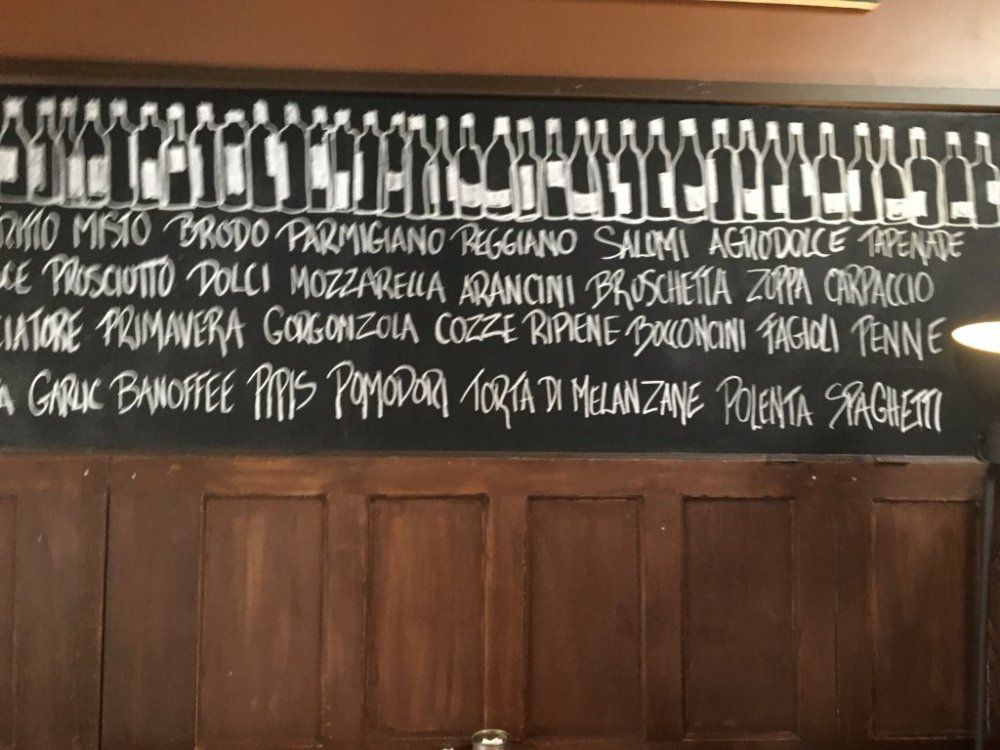 MISTO BRODO PARMIGIANO REGGIANO SALUMI AGRODOLCE TAPENADE
PROSCIUTTO DOLCI MOZZARELLA ARANCINI BRUSCHETTA ZUPPA CARPACCIO
PRIMAVERA GORGONZOLA COZZE RIPIENE BOCCONCINI FAGIOLI PENNE
GARLIC BANOFFEE PIPIS POMODORI TORTA DI MELANZANE POLENTA SPAGHETTI